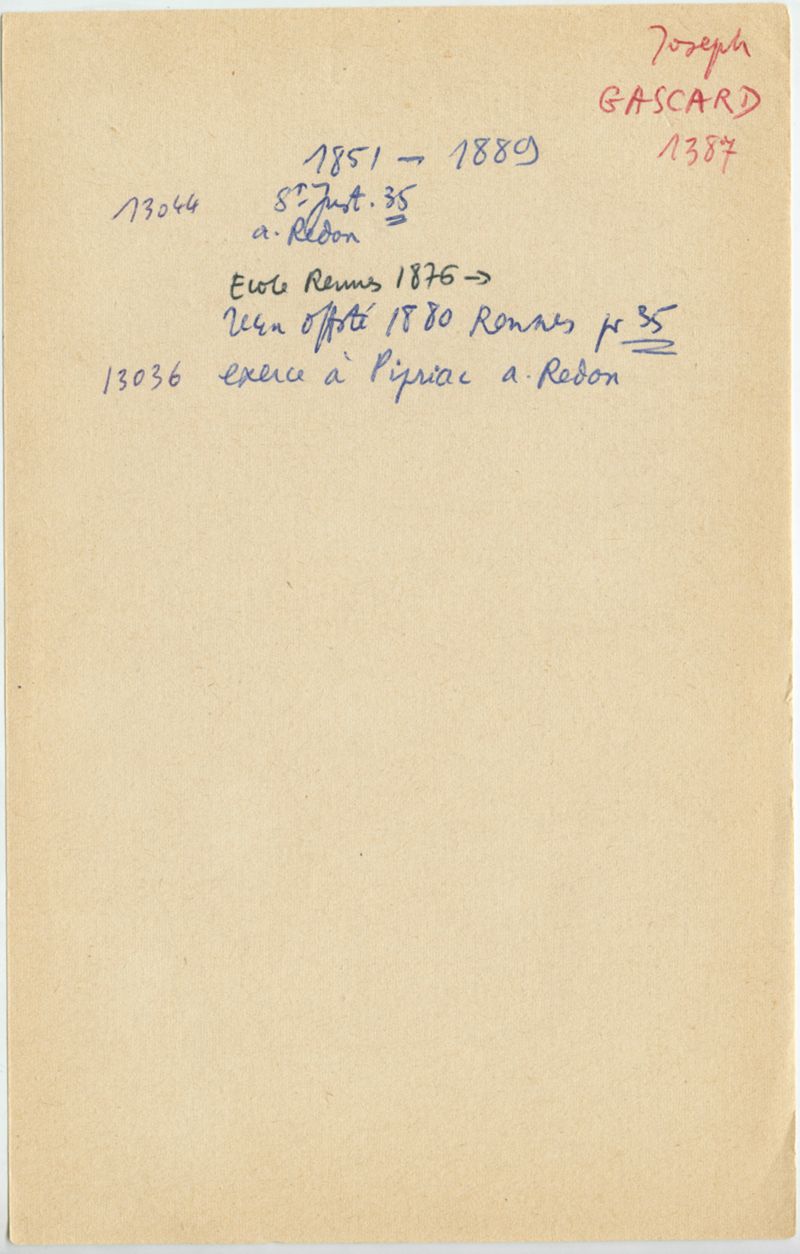 Joseph
GASCARD
1387
1851 → 1889
13044 St Just. 35
a. Redon
Ecole Rennes 1876 →
1880 Rennes pr 35
13036 exerce à Pipriac a. Redon